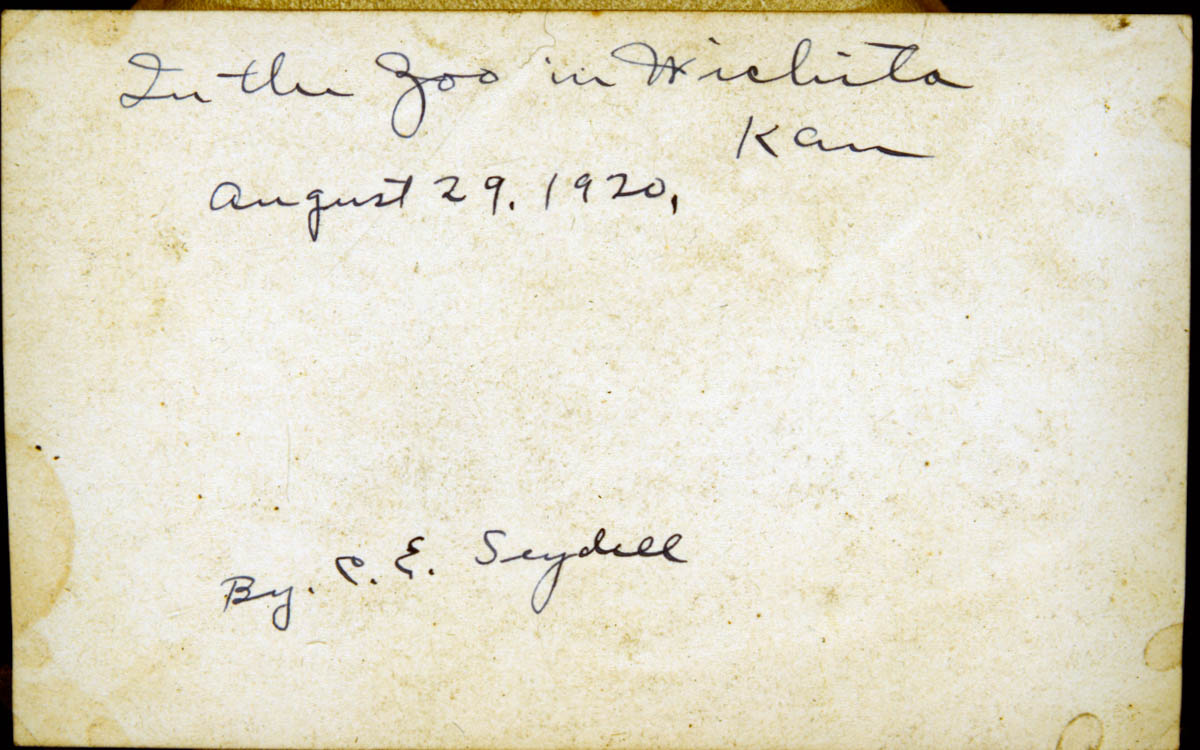 In the Zoo in Wichita
Kan
August 29. 1920,
By. C. E. Seydell